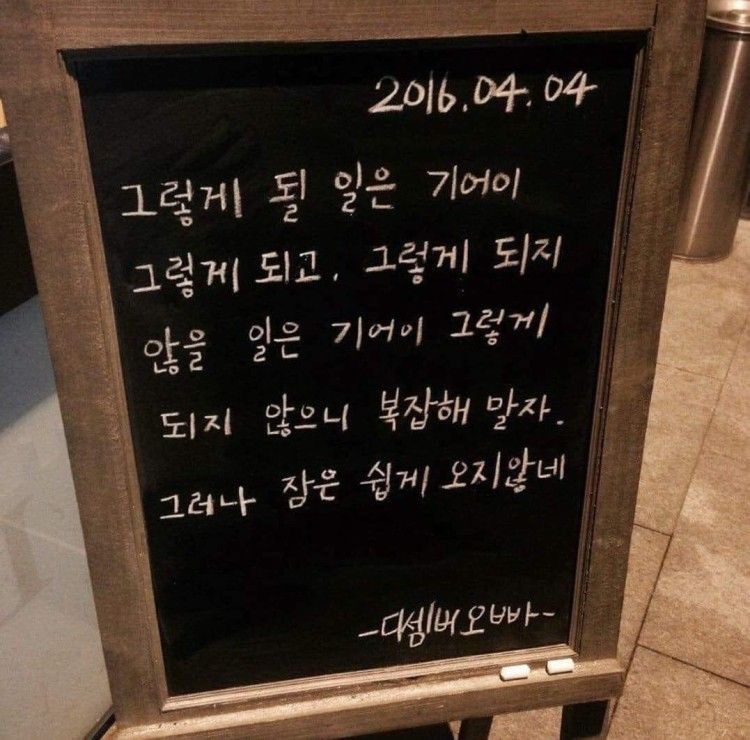 2016.04.04
그렇게 될 일은 기어이
그렇게 되고, 그렇게 되지
않을 일은 기어이 그렇게
되지 않으니 복잡해 말자.
그러나 잠은 쉽게 오지않네
-다셈버오빠-